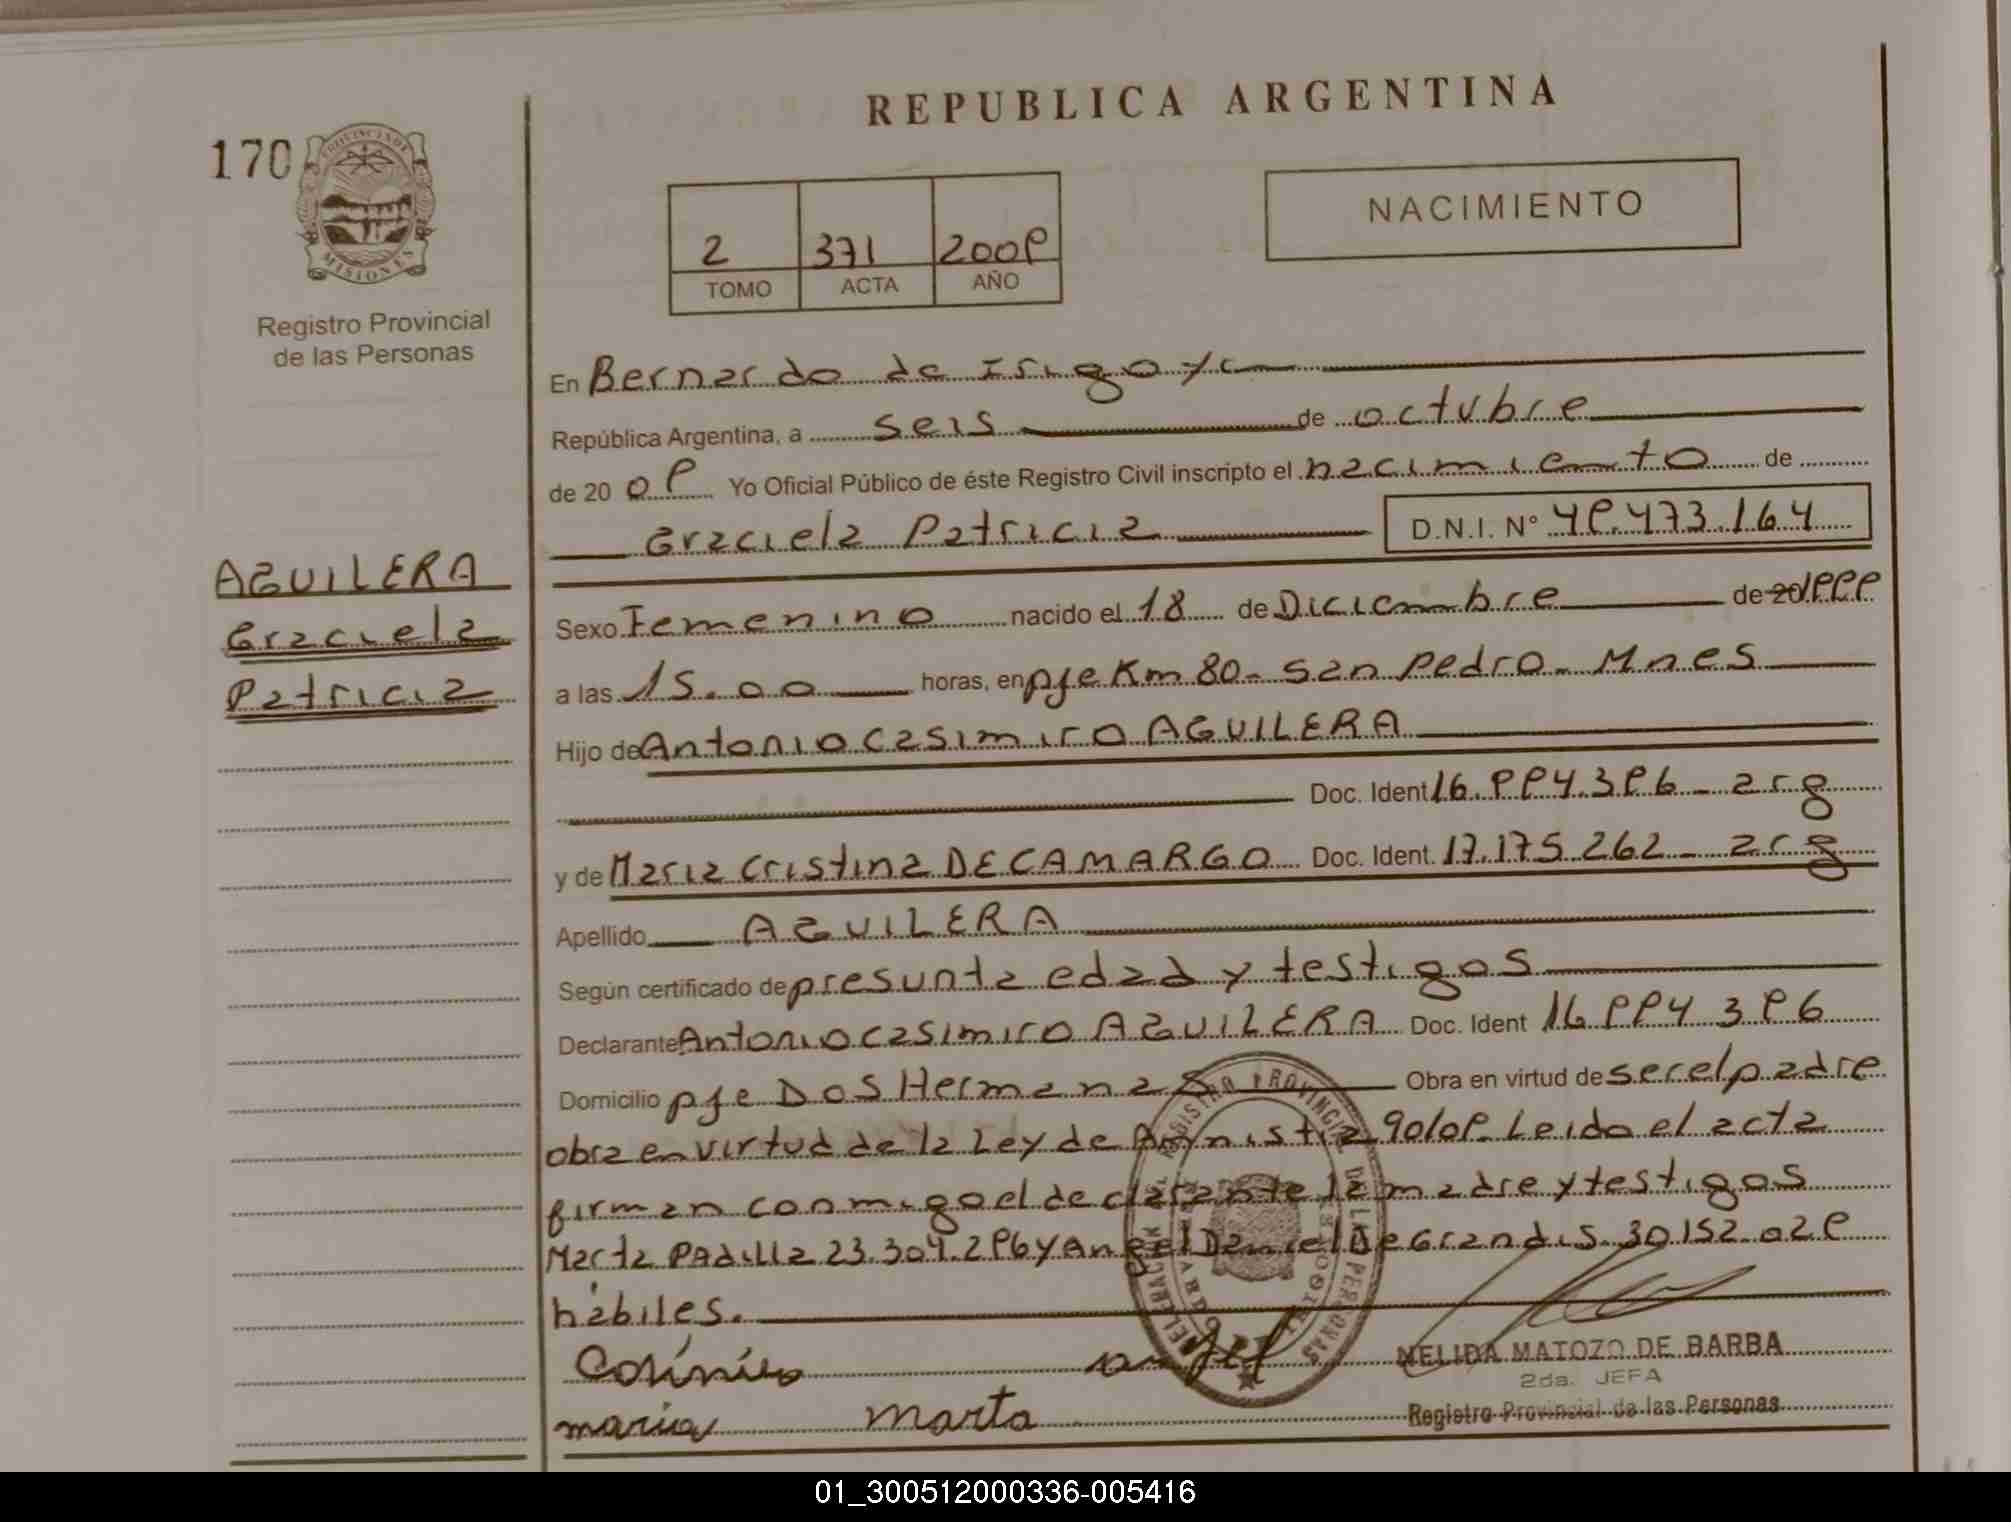 REPUBLICA ARGENTINA
170
PROVINCIA DE
MISIONES
NACIMIENTO
2 371 2009
TOMO ACTA AÑO
Registro Provincial
de las Personas
En Bernardo de Irigoyen
República Argentina, a seis de octubre
de 20 09 Yo Oficial Público de éste Registro Civil inscripto el nacimiento de
Graciela Patricia D.N.I. Nº 49.473.164
AGUILERA
Graciela
Patricia
Sexo Femenino nacido el 18 de Diciembre de 20 1999
a las 15.00 horas, en pje Km 80- San Pedro- Mnes
Hijo de Antonio Casimiro AGUILERA
Doc. Ident 16.994.396 - arg
y de Maria Cristina DE CAMARGO Doc. Ident. 17.175.262 - arg
Apellido AGUILERA
Según certificado de presunta edad y testigos
Declarante Antonio Casimiro AGUILERA Doc. Ident 16 994 396
Domicilio pje Dos Hermanas Obra en virtud de ser el padre
obra en virtud de la Ley de Amnistia 90/09. Leido el acta
firman conmigo el declarante la madre y testigos
Marta PAdilla 23.304.296 y Angel Daniel De Grandis 30.152.029
hábiles.
angel
maria marta
NELIDA MATOZO DE BARBA
2da. JEFA
Registro Provincial de las Personas
REGISTRO PROVINCIAL DE LAS PERSONAS
01_300512000336-005416